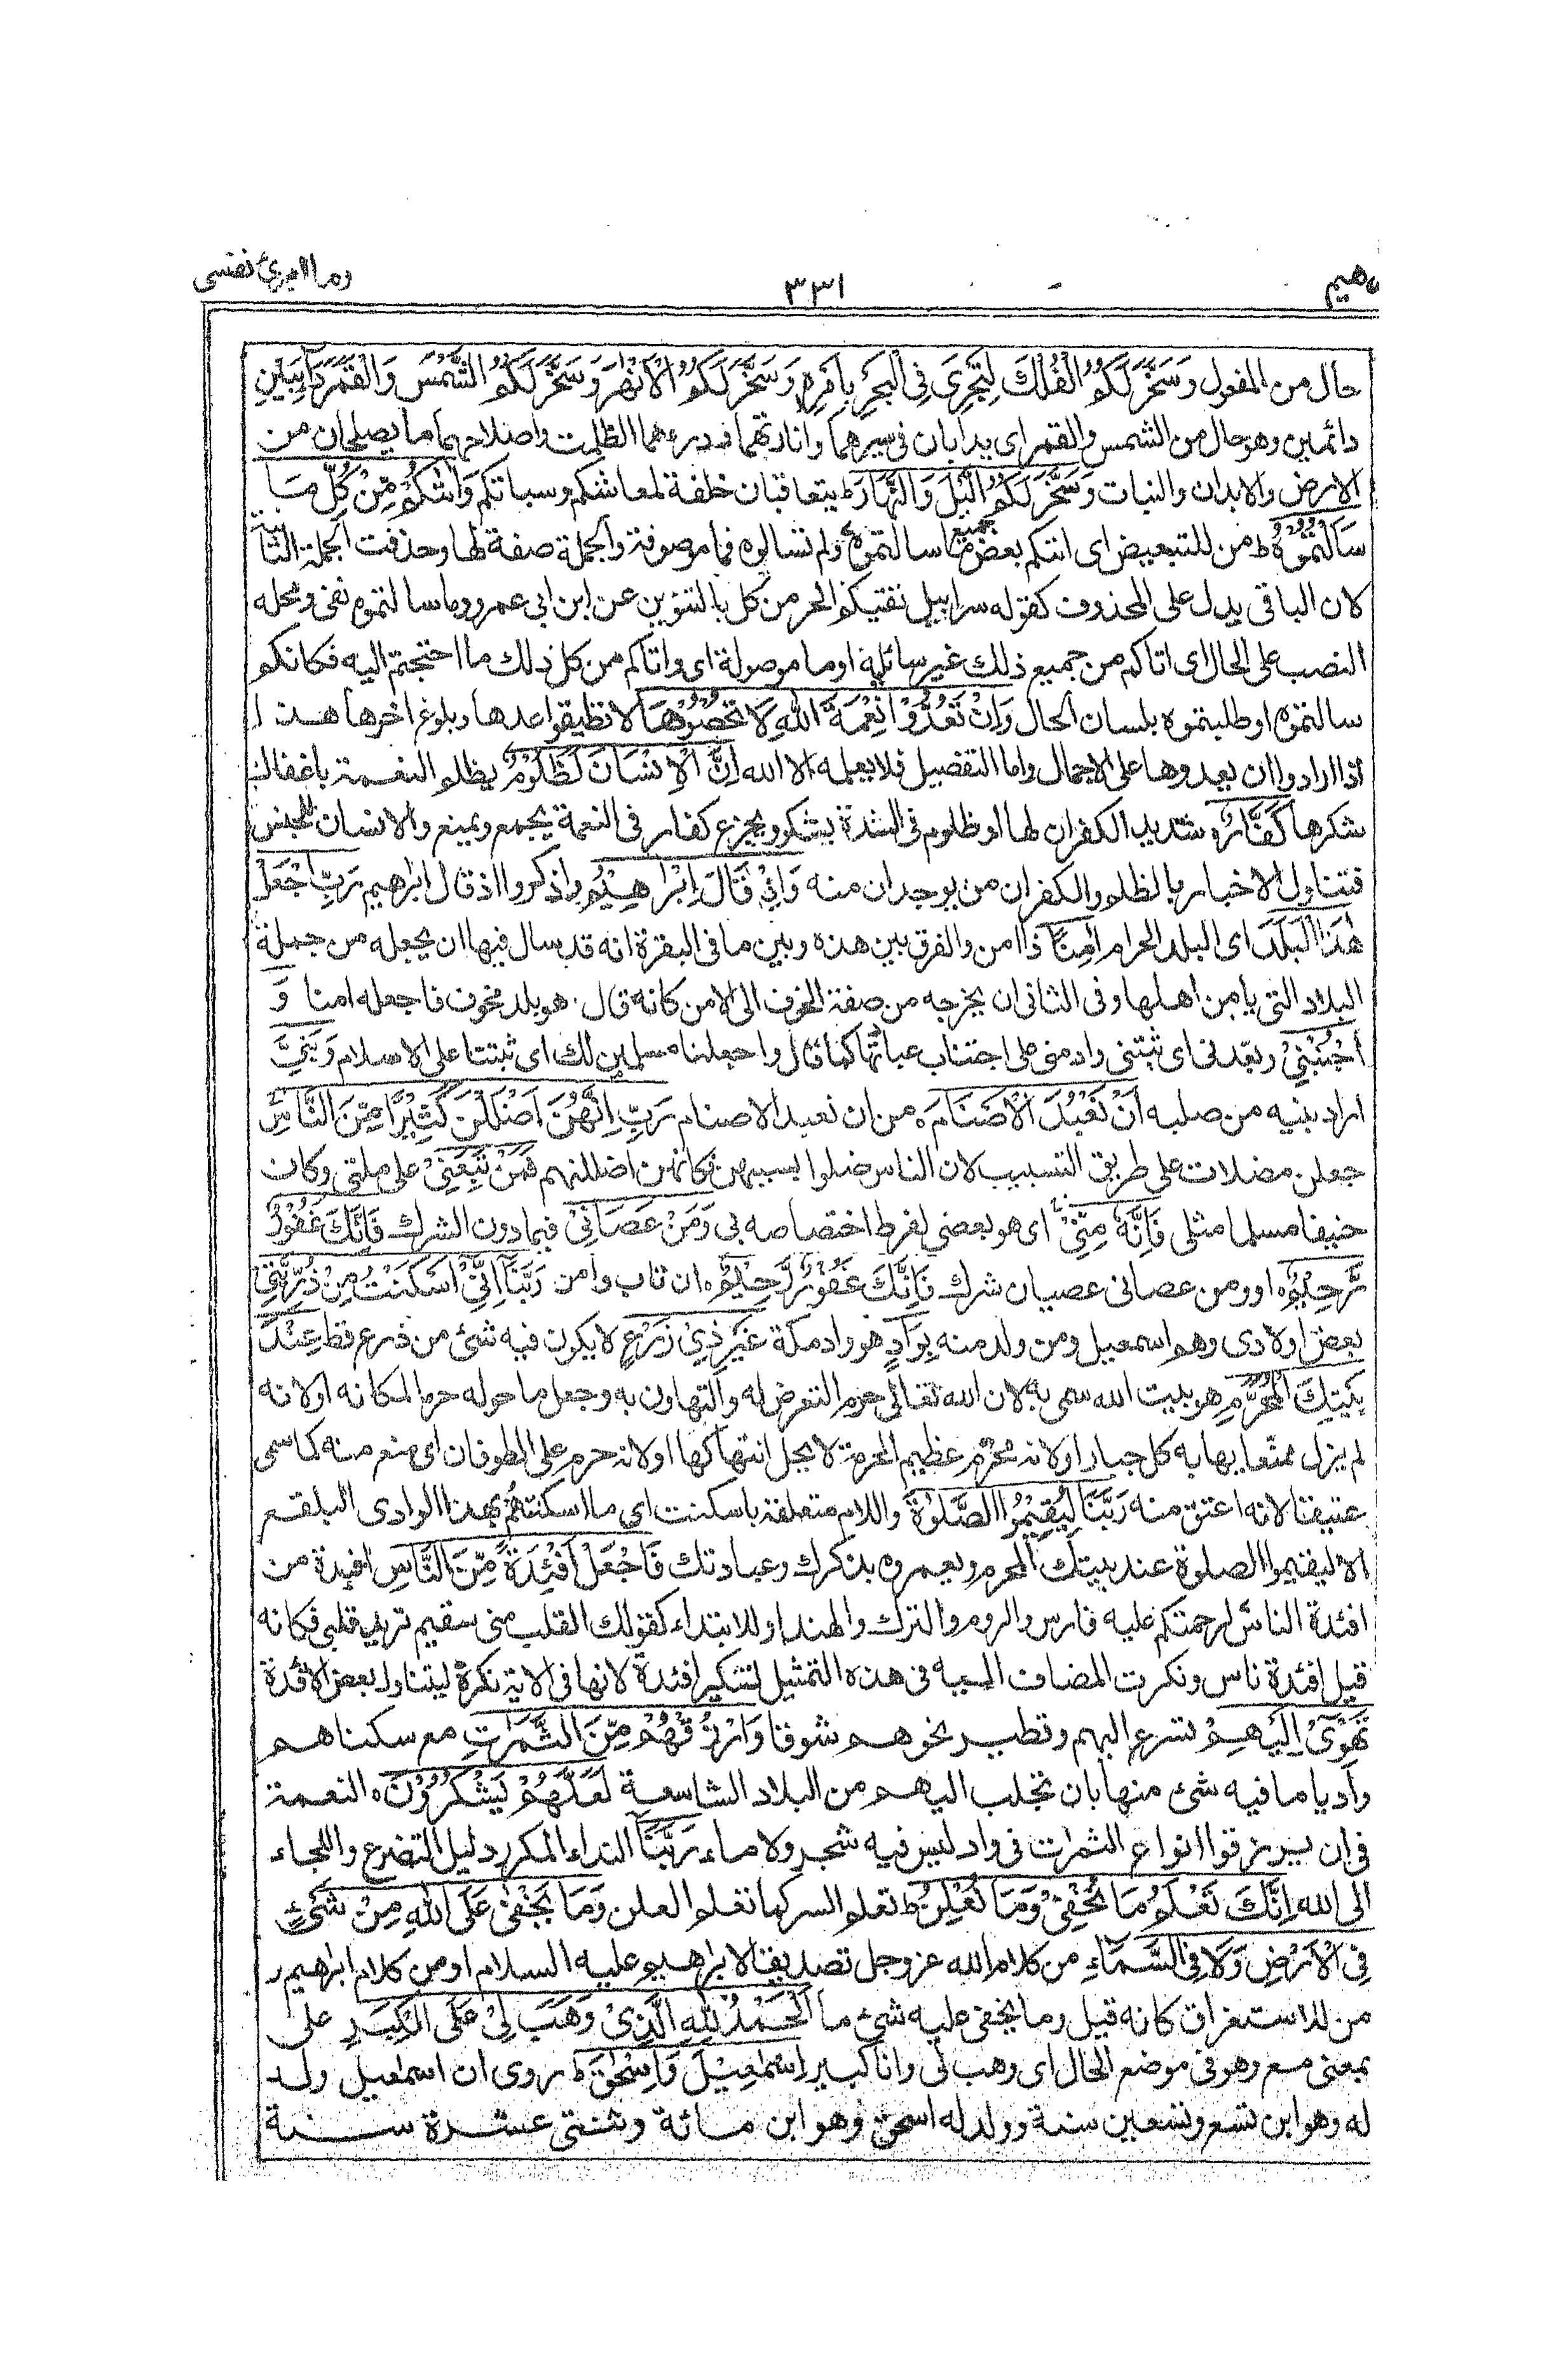 وما ابرئ نفسى
٣٣١
هيم
حال من المفعول وَسَخَّرَ لَكُمُ الْفُلْكَ لِتَجْرِيَ فِي الْبَحْرِ بِاَمْرِهٖ وَسَخَّرَ لَكُمُ الْاَنْهٰرَ وَسَخَّرَ لَكُمُ الشَّمْسَ وَالْقَمَرَ دَآئِبَيْنِ
دائمين وهو حال من الشمس والقمر اى يدابان فى سيرهما وانارتهما ودرءهما الظلمت واصلاحهما ما يصلحان من
الارض والابدان والنبات وَسَخَّرَ لَكُمُ الَّيْلَ وَالنَّهَارَ ط يتعاقبان خلفة لمعاشكم وسباتكم وَاٰتٰىكُمْ مِّنْ كُلِّ مَا
سَاَلْتُمُوْهُ ط من للتبعيض اى اتىكم بعض جميع ما سالتموه ولم تسالوه فما موصوفة والجملة صفة لها وحذفت الجملة الثانية
لان الباقى يدل على المحذوف كقوله سرابيل تقيكم الحر من كل بالتنوين عن ابى عمرو وما سالتموه نفى ومحله
النصب على الحال اى اتاكم من جميع ذلك غير سائليه او ما موصولة اى واتاكم من كل ذلك ما احتجتم اليه فكانكم
سالتموه او طلبتموه بلسان الحال وَاِنْ تَعُدُّوْا نِعْمَةَ اللّٰهِ لَا تُحْصُوْهَا لا تطيقوا عدها وبلوغ اخرها هذا
اذا ارادوا ان يعدوها على الاجمال واما التفصيل فلا يعلمه الا الله اِنَّ الْاِنْسَانَ لَظَلُوْمٌ يظلم النعمة باغفال
شكرها كَفَّارٌ ه شديد الكفران لها او ظلوم فى الشدة يشكو ويجزع كفار فى النعمة يجمع ويمنع والانسان للجنس
فيتناول الاخبار بالظلم والكفران من يوجدان منه وَاِذْ قَالَ اِبْرَاهِيْمُ واذكروا اذ قال ابرهيم رَبِّ اجْعَلْ
هٰذَا الْبَلَدَ اى البلد الحرام اٰمِنًا ذا امن والفرق بين هذه وبين ما فى البقرة انه قد سال فيها ان يجعله من جملة
البلاد التى يامن اهلها وفى الثانى ان يخرجه من صفة الخوف الى الامن كانه قال هو بلد مخوف فاجعله امنا وَّ
اجْنُبْنِيْ وبعدنى اى ثبتنى وادمنى على اجتناب عباتها كما قال واجعلنا مسلمين لك اى ثبتنا على الاسلام وَبَنِيَّ
اراد بنيه من صلبه اَنْ نَّعْبُدَ الْاَصْنَامَ ه من ان نعبد الاصنام رَبِّ اِنَّهُنَّ اَضْلَلْنَ كَثِيْرًا مِّنَ النَّاسِ
جعلن مضلات على طريق التسبيب لان الناس ضلوا بسببهن فكانهن اضللنهم فَمَنْ تَبِعَنِيْ على ملتى وكان
حنيفا مسلما مثلى فَاِنَّهٗ مِنِّيْ اى هو بعضى لفرط اختصاصه بى وَمَنْ عَصَانِيْ فيما دون الشرك فَاِنَّكَ غَفُوْرٌ
رَّحِيْمٌ ه او ومن عصانى عصيان شرك فَاِنَّكَ غَفُوْرٌ رَّحِيْمٌ ه ان تاب وامن رَبَّنَآ اِنِّيْٓ اَسْكَنْتُ مِنْ ذُرِّيَّتِيْ
بعض اولادى وهو اسمعيل ومن ولد منه بِوَادٍ هو وادمكة غَيْرِ ذِيْ زَرْعٍ لا يكون فيه شئ من زرع قط عِنْدَ
بَيْتِكَ الْمُحَرَّمِ هو بيت الله سمى به لان الله تعالى حرم التعرض له والتهاون به وجعل ما حوله حرما لمكانه او لانه
لم يزل ممنعا يهابه كل جبار او لانه محترم عظيم الحرمة لا يحل انتهاكها او لانه حرم على الطوفان اى منع منه كما سمى
عتيقا لانه اعتق منه رَبَّنَا لِيُقِيْمُوا الصَّلٰوةَ واللام متعلقة باسكنت اى ما اسكنتهم بهذا الوادى البلقع
الا ليقيموا الصلوة عند بيتك المحرم ويعمروه بذكرك وعبادتك فَاجْعَلْ اَفْئِدَةً مِّنَ النَّاسِ افئدة من
افئدة الناس لرحمتكم عليه فارس والروم والترك والهند او للابتداء كقولك القلب منى سقيم تريد قلبى فكانه
قيل افئدة ناس ونكرت المضاف اليه فى هذه التمثيل لتنكير افئدة لانها فى الاية نكرة ليتناول بعض الافئدة
تَهْوِيْٓ اِلَيْهِمْ تسرع اليهم وتطير نحوهم شوقا وَارْزُقْهُمْ مِّنَ الثَّمَرٰتِ مع سكناهم
واديا ما فيه شئ منها بان تجلب اليهم من البلاد الشاسعة لَعَلَّهُمْ يَشْكُرُوْنَ ه النعمة
فى ان يرزقوا انواع الثمرات فى واد ليس فيه شجر ولا ماء رَبَّنَآ النداء المكرر دليل التضرع واللجاء
الى الله اِنَّكَ تَعْلَمُ مَا نُخْفِيْ وَمَا نُعْلِنُ ط تعلم السر كما تعلم العلن وَمَا يَخْفٰى عَلَى اللّٰهِ مِنْ شَيْءٍ
فِي الْاَرْضِ وَلَا فِي السَّمَآءِ من كلام الله عز وجل تصديقا لابراهيم عليه السلام او من كلام ابرهيم
من للاستغراق كانه قيل وما يخفى عليه شئ ما اَلْحَمْدُ لِلّٰهِ الَّذِيْ وَهَبَ لِيْ عَلَى الْكِبَرِ على
بمعنى مع وهو فى موضع الحال اى وهب لى وانا كبير اِسْمٰعِيْلَ وَاِسْحٰقَ ط روى ان اسمعيل ولد
له وهو ابن تسع وتسعين سنة وولد له اسحق وهو ابن مائة وثنتى عشرة سنة